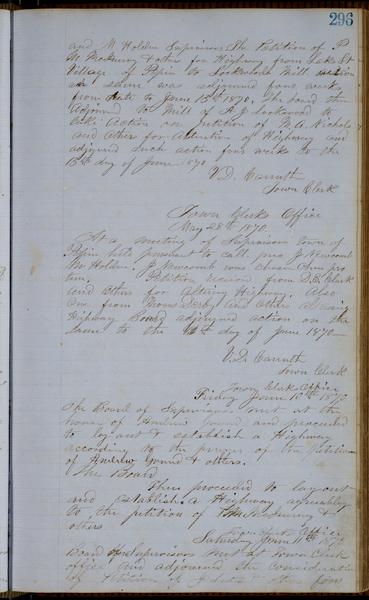 296
and M Holden Supervisors The Petition of P
M McKinney & other for Highway from Lake St
Village of Pepin to Lockwoods Mill action
on same was adjourned four weeks
from date to June 15th 1870, The board then
Adjourned to Mill of S J Lockwood to
take Action on Petition of M. A. Nichols
and Other for Alteration of Highway and
adjourned such action four weeks to the
15th day of June 1870
V. D. Carruth
Town Clerk
Town Clerks Office
May 28th 1870
At a meeting of Supervisors town of
Pepin held pursuant to call. pres J Newcomb
M Holden. Newcomb was chosen Chm pro
tem Petition received from S. E. Clark
and Others for Altering Highway Also
One from and Other
Highway Road adjourned action on the
same to the day of June 1870
V. D. Carruth
Town Clerk
Town Clerks Office
Friday June 10th 1870
The Board of Supervisors met at the
house of Andrew Gound and proceeded
to lay out & establish a Highway
according to the prayer of the petition
of Andrew Gound & others.
The Board
then proceeded to lay out
and establish a Highway agreeably
to the petition of &
others
Town Clerk Office
Saturday June 11th 1870
Board of Supervisors met at Town Clerk
office and adjourned the consideration
of Petition of J & others for